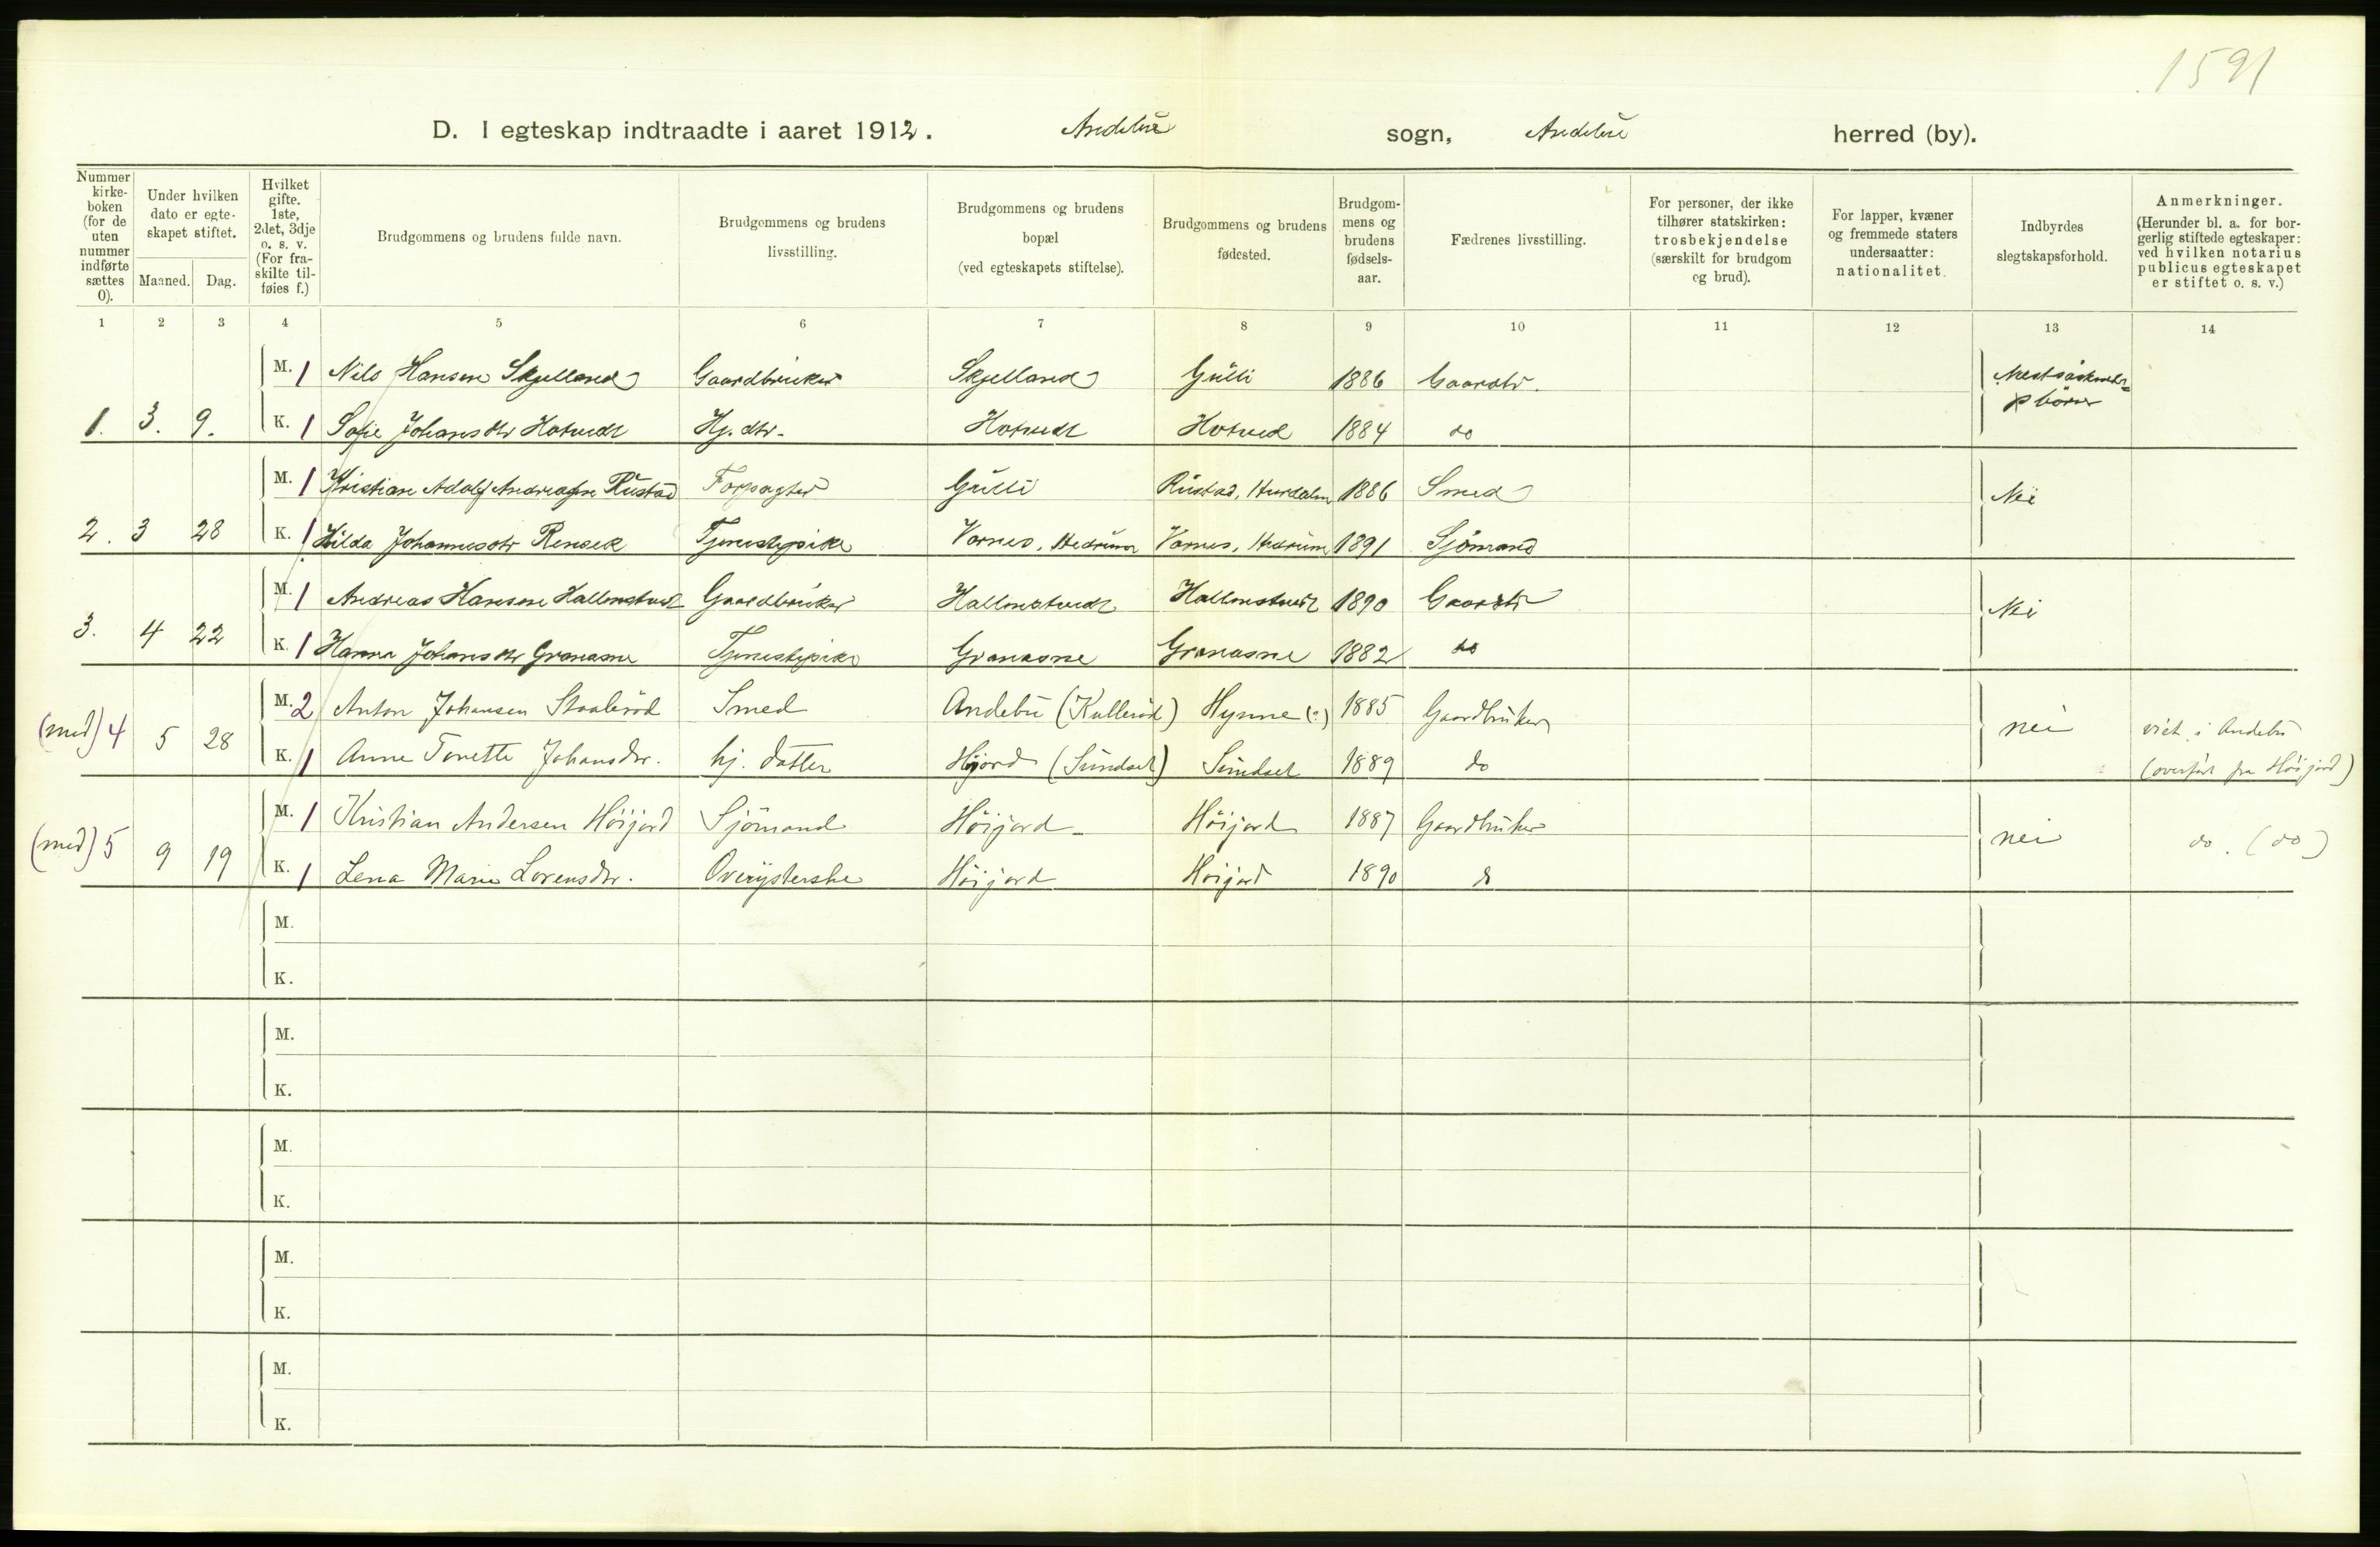 1591
D. I egteskap indtraadte i aaret 1912. Andebu sogn, Andebu herred (by).
Nummer kirke-boken (for de uten nummer indførte sættes 0).
Under hvilken dato er egte-skapet stiftet.
Maaned. Dag.
Hvilket gifte. 1ste, 2det, 3dje o. s. v. (For fra-skilte til-føies f.)
Brudgommens og brudens fulde navn.
Brudgommens og brudens livsstilling.
Brudgommens og brudens bopæl (ved egteskapets stiftelse).
Brudgommens og brudens fødested.
Brudgom-mens og brudens fødsels-aar.
Fædrenes livsstilling.
For personer, der ikke tilhører statskirken: trosbekjendelse (særskilt for brudgom og brud).
For lapper, kvæner og fremmede staters undersaatter: nationalitet.
Indbyrdes slegtskapsforhold.
Anmerkninger. (Herunder bl. a. for bor-gerlig stiftede egteskaper: ved hvilken notarius publicus egteskapet er stiftet o. s. v.)
1 2 3 4 5 6 7 8 9 10 11 12 13 14
M. 1 Nils Hansen Skjelland Gaardbruker Skjelland Gulli 1886 Gaardbr.
1. 3. 9. K. 1 Sofie Johansdtr Hotvedt Hj. dtr. Hotvedt Hotved 1884 do
M. 1 Kristian Adolf Andreassen Rustad Forpagter Gulli Rustad, Hurdalen 1886 Smed Nei
2. 3 28 K. 1 Hilda Johannesdtr Tjenestepike Varnes, Hedrum Varnes, Hedrum 1891 Sjömand
M. 1 Andreas Hansen Hallenstvedt Gaardbruker Hallenstvedt Hallenstvedt 1890 Gaardbr Nei
3. 4 22 K. 1 Hanna Johansdtr Granaasne Tjenestepike Granaasne Granaasne 1882 do
M. 2 Anton Johansen Staalerød Smed Andebu (Kullerød) Hynne (?) 1885 Gaardbruker nei viet i Andebu
(med) 4 5 28 K. 1 Anne Tonette Johansdtr. hj. datter Høijord (Sundset) Sundset 1889 do (overført fra Höijord)
M. 1 Kristian Andersen Höijord Sjömand Höijord Höijord 1887 Gaardbruker nei do. (do)
(med) 5 9 19 K. 1 Lena Marie Lorensdtr. Overysterske Höijord Höijord 1890 do
M.
K.
M.
K.
M.
K.
M.
K.
M.
K.